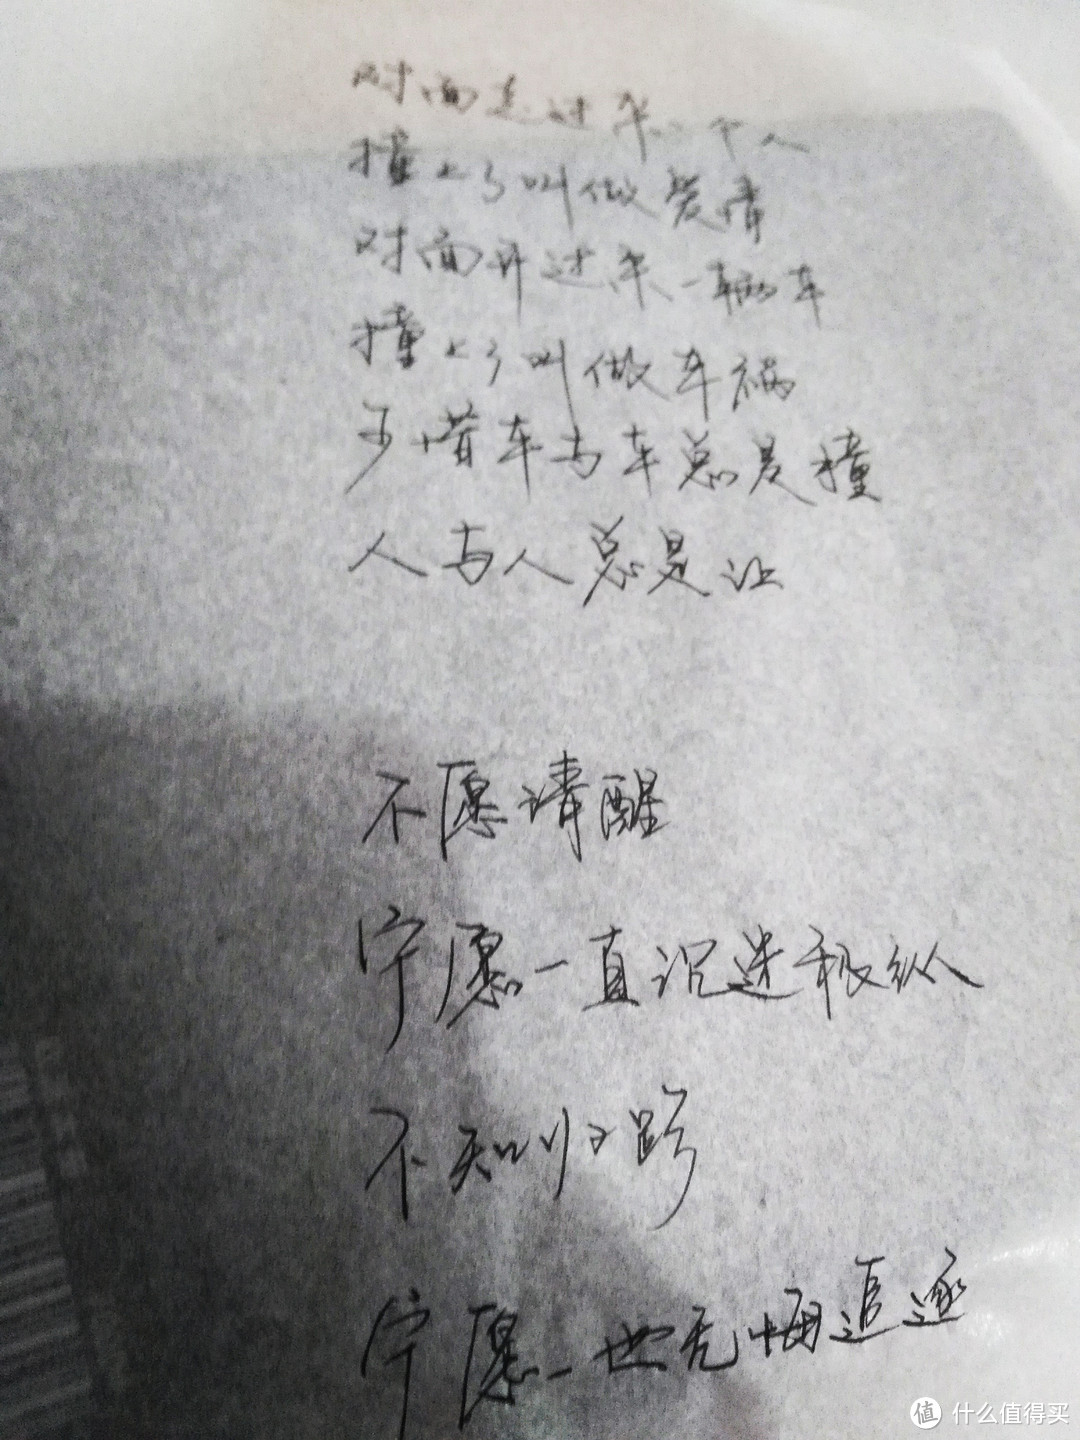 对面走过来一个人
撞上了叫做爱情
对面开过来一辆车
撞上了叫做车祸
可惜车与车总是撞
人与人总是让
不愿清醒
宁愿一直沉迷放纵
不知归路
宁愿一世无悔追逐
值 什么值得买